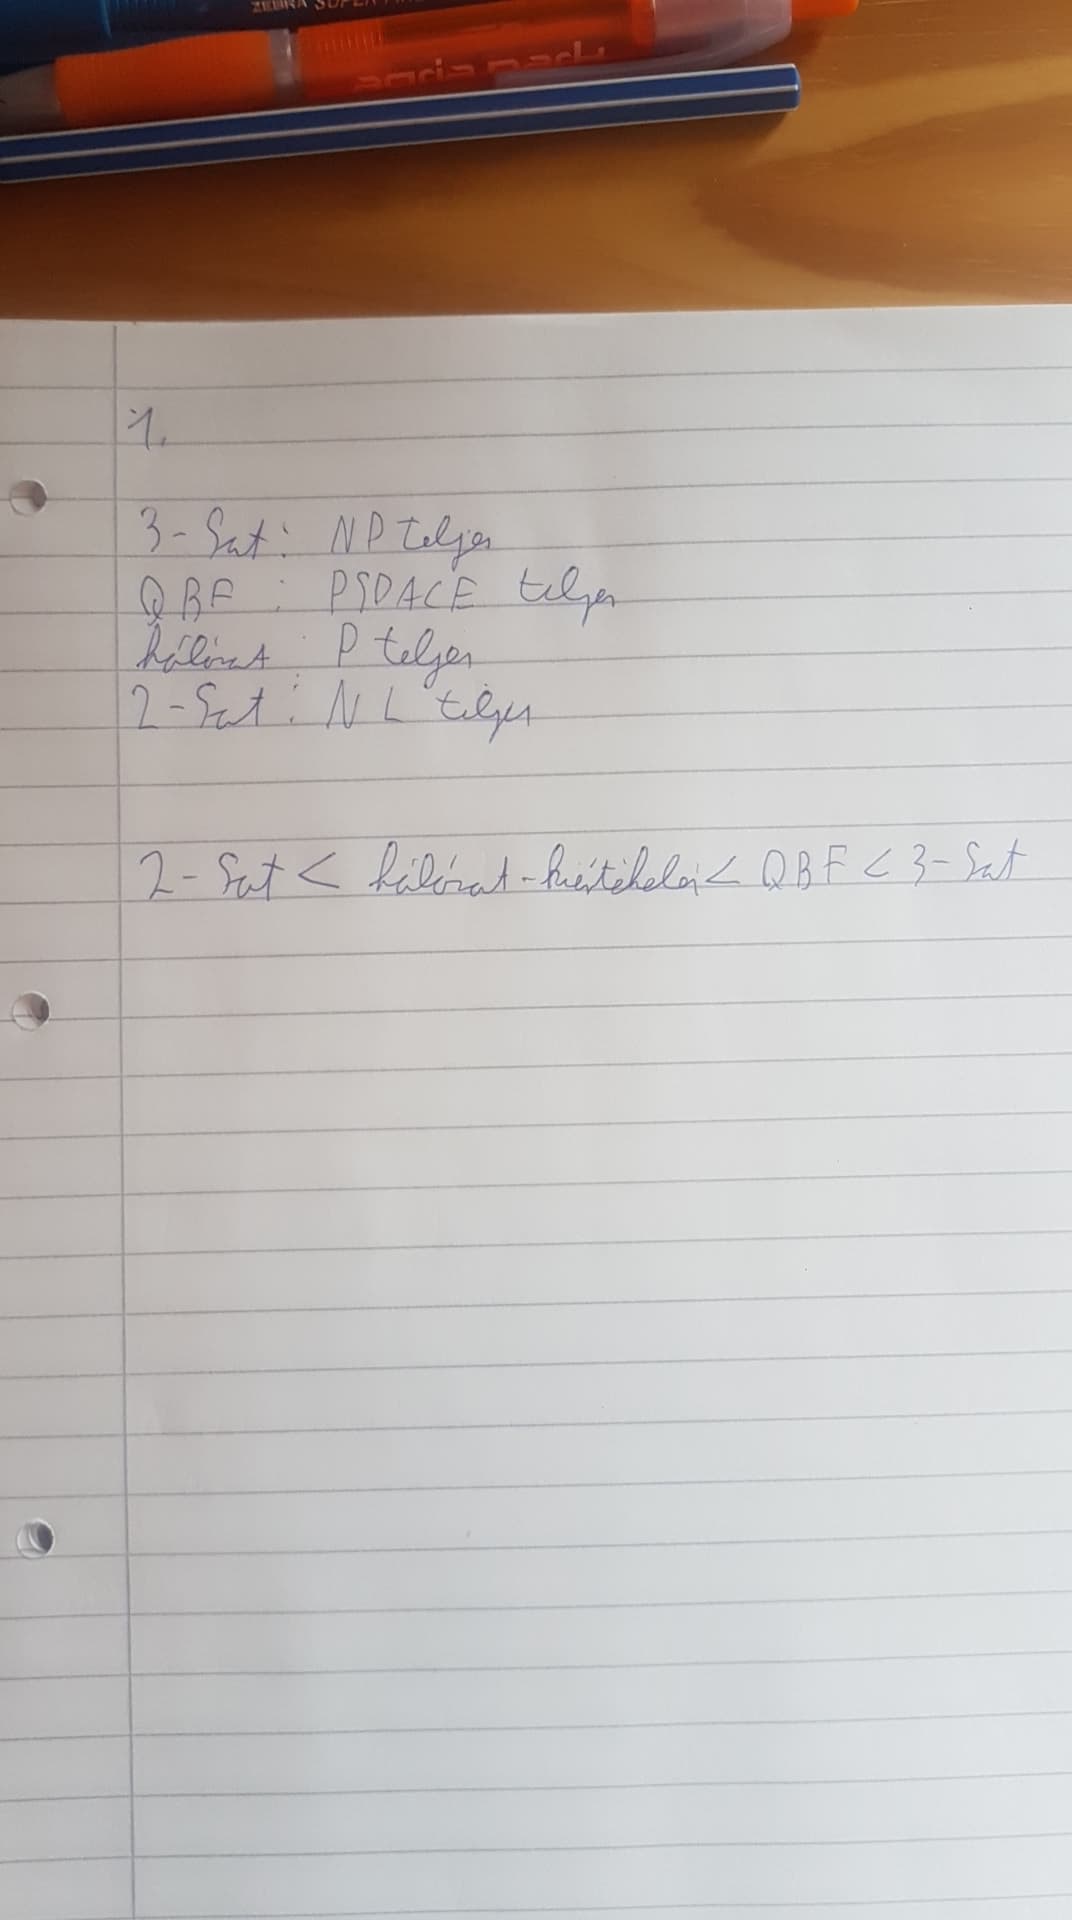 ZEBRA SUPER
agria park
1.
3-Sat: NP teljes
QBF : PSPACE teljes
hálózat : P teljes
2-Sat : NL teljes
2-Sat < hálózat-kiértékelés < QBF < 3-Sat